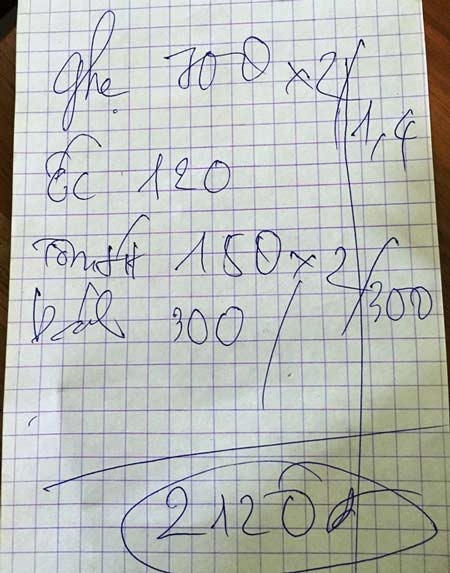 ghẹ 700 x 2 / 1,4
Ốc 120
150 x 2 / 300
300 /
2120đ